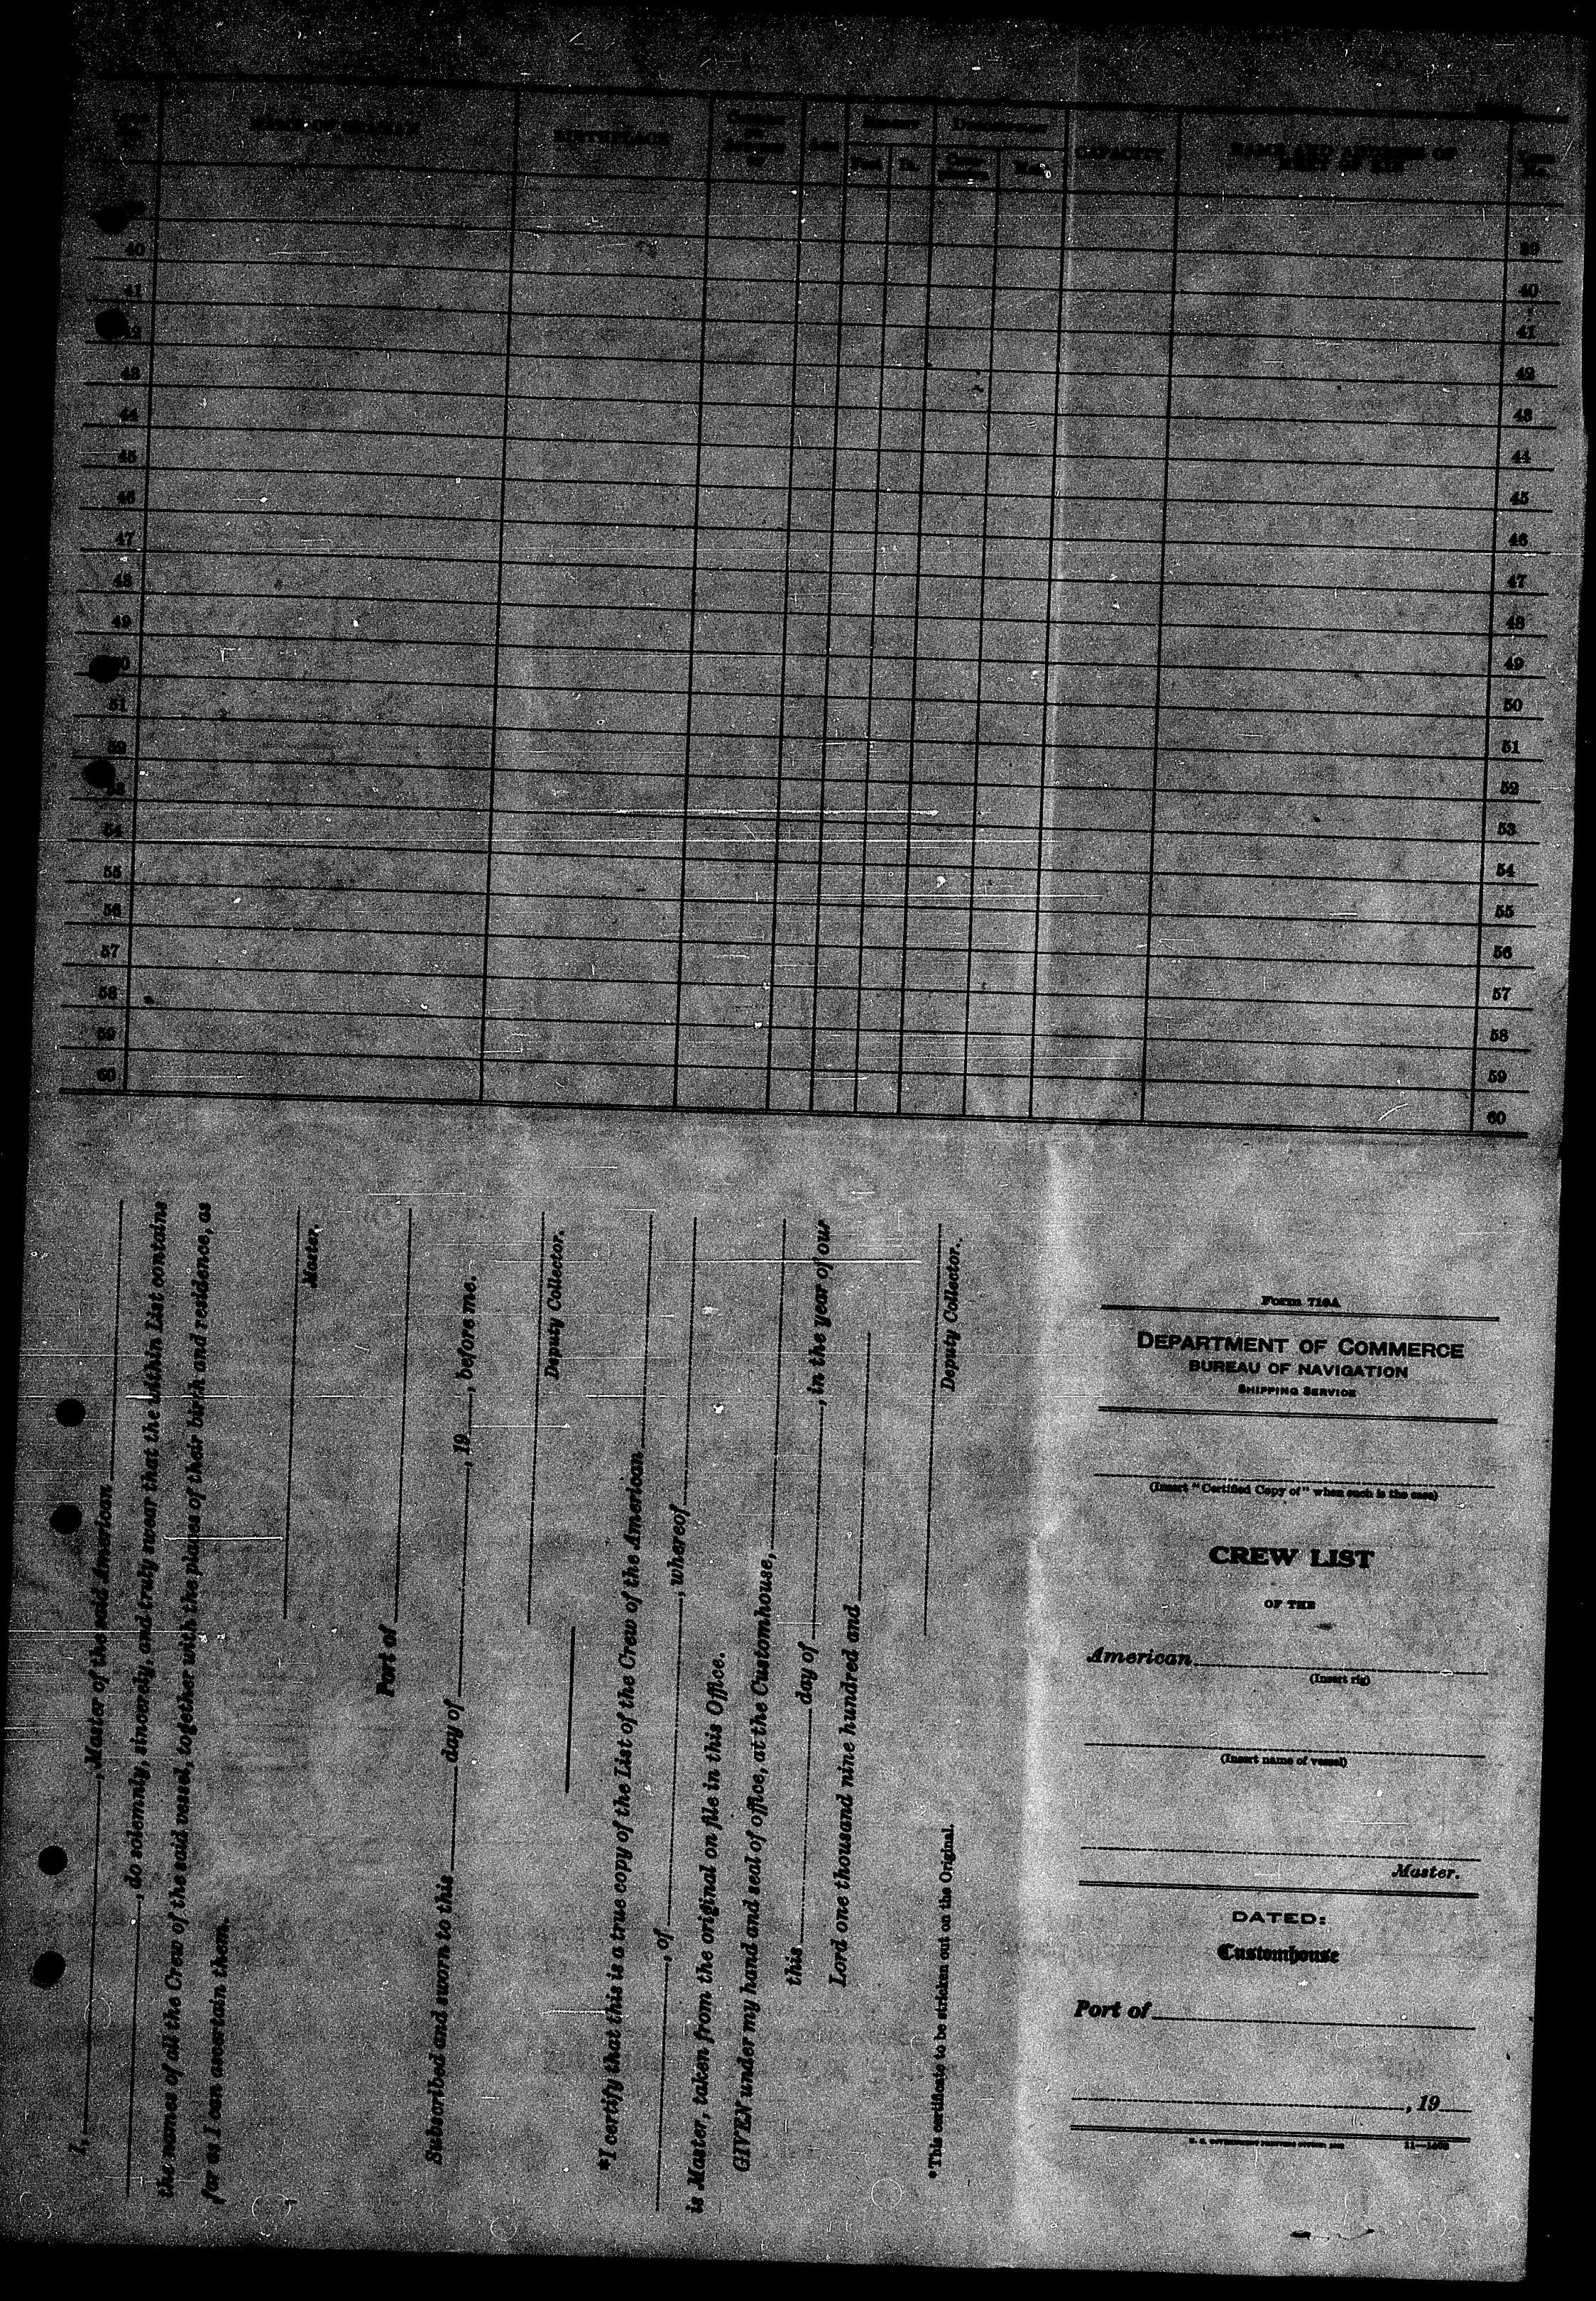 NAME OF SEAMAN BIRTHPLACE CAPACITY NAME AND ADDRESS OF
Feet In.
39
40 40
41 41
42
43 42
44 43
45 44
46 45
47 46
48 47
49 48
49
51 50
52 51
53 52
54 53
55 54
56 55
57 56
58 57
59 58
60 59
60
I, , Master of the said American
, do solemnly, sincerely, and truly swear that the within List contains
the names of all the Crew of the said vessel, together with the places of their birth and residence, as
far as I can ascertain them.
Master.
Port of
Subscribed and sworn to this day of , 19 , before me.
Deputy Collector.
*I certify that this is a true copy of the List of the Crew of the American
, of , whereof
is Master, taken from the original on file in this Office.
GIVEN under my hand and seal of office, at the Customhouse,
this day of , in the year of our
Lord one thousand nine hundred and
Deputy Collector.
*This certificate to be stricken out on the Original.
Form 710A
DEPARTMENT OF COMMERCE
BUREAU OF NAVIGATION
SHIPPING SERVICE
(Insert "Certified Copy of" when such is the case)
CREW LIST
OF THE
American
(Insert rig)
(Insert name of vessel)
Master.
DATED:
Customhouse
Port of
, 19
U. S. GOVERNMENT PRINTING OFFICE